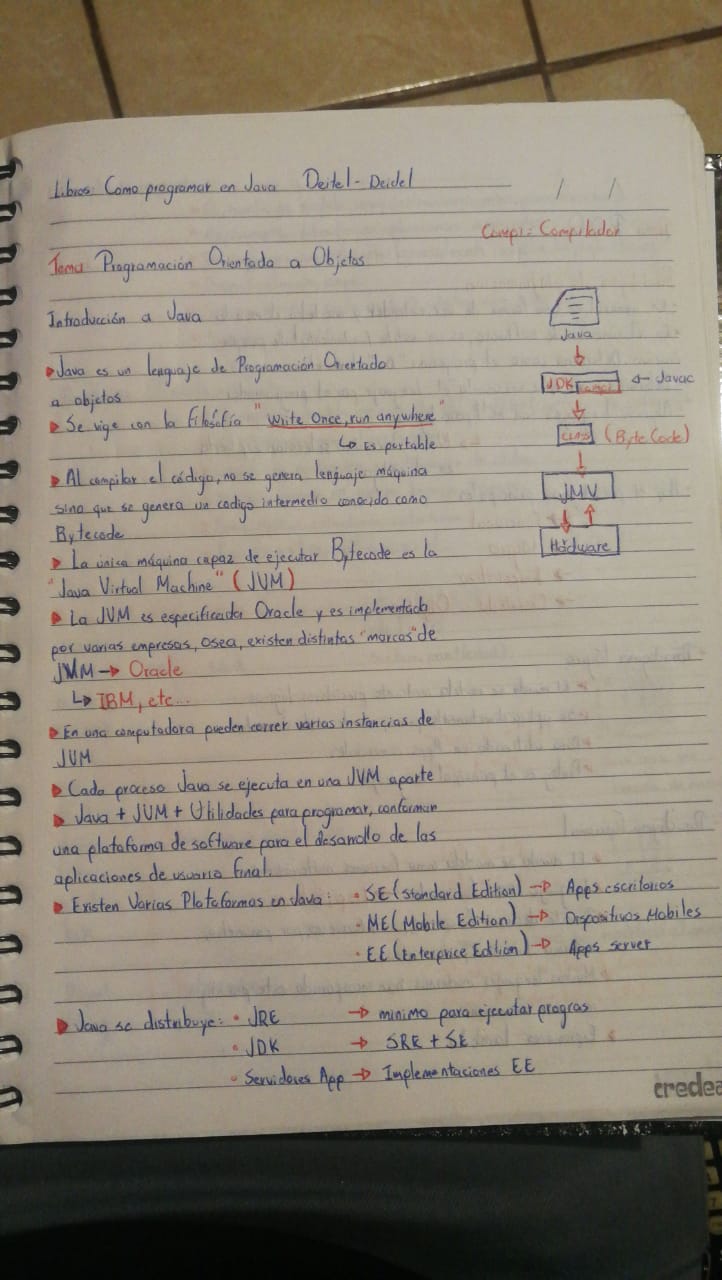 Libros: Como programar en Java Deitel - Deidel
/ /
Compi: Compilador
Tema: Programación Orientada a Objetos
Introducción a Java
Java es un lenguaje de Programación Orientado
a objetos
Se rige con la filosofía "Write Once, run anywhere"
↳ Es portable
Al compilar el código, no se genera lenguaje máquina
sino que se genera un codigo intermedio conocido como
Bytecode
La única máquina capaz de ejecutar Bytecode es la
"Java Virtual Machine" (JVM)
La JVM es especificada Oracle y es implementada
por varias empresas, osea, existen distintas "marcas" de
JVM → Oracle
↳ IBM, etc...
En una computadora pueden correr varias instancias de
JVM
Cada proceso Java se ejecuta en una JVM aparte
Java + JVM + Utilidades para programar, conforman
una plataforma de software para el desarrollo de las
aplicaciones de usuario final.
Existen Varias Plataformas en Java: • SE (Standard Edition) → Apps escritorios
• ME (Mobile Edition) → Dispositivos Mobiles
• EE (Enterprice Edition) → Apps server
Java se distribuye: • JRE → minimo para ejecutar progras
• JDK → SRE + SE
• Servidores App → Implementaciones EE
Java
JDK compi ← Javac
class (Byte Code)
JMV
Hadware
credea